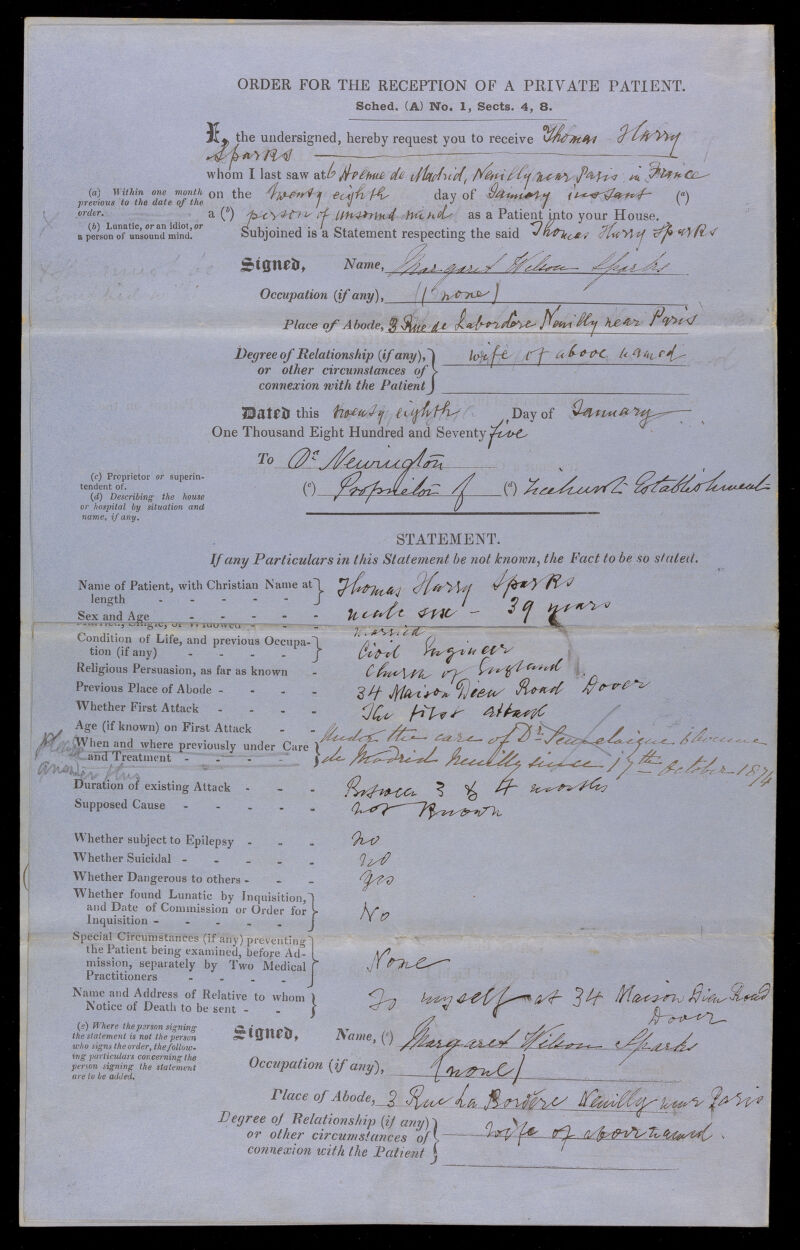 ORDER FOR THE RECEPTION OF A PRIVATE PATIENT.
Sched. (A) No. 1, Sects. 4, 8.
I, the undersigned, hereby request you to receive Thomas Harry
Sparks
whom I last saw at 6 Avenue de Madrid, Neuilly near Paris in France
(a) Within one month previous to the date of the order.
on the twenty eighth day of January instant (a)
(b) Lunatic, or an idiot, or a person of unsound mind.
a (b) person of unsound mind as a Patient into your House.
Subjoined is a Statement respecting the said Thomas Harry Sparks
Signed, Name, Margaret Wilson Sparks
Occupation (if any), (none)
Place of Abode, 3 Rue de Labordère Neuilly near Paris
Degree of Relationship (if any), or other circumstances of connexion with the Patient } wife of above named
Dated this twenty eighth Day of January
One Thousand Eight Hundred and Seventy five
To Dr Newington
(c) Proprietor or superintendent of.
(d) Describing the house or hospital by situation and name, if any.
(c) Proprietor of (d) Ticehurst Establishment
STATEMENT.
If any Particulars in this Statement be not known, the Fact to be so stated.
Name of Patient, with Christian Name at length - - - - - } Thomas Harry Sparks
Sex and Age - - - - - male sex - 39 years
Married, Single, or Widowed - - married
Condition of Life, and previous Occupation (if any) - - - - } Civil Engineer
Religious Persuasion, as far as known - Church of England
Previous Place of Abode - - - - 34 Maison Dieu Road Dover
Whether First Attack - - - - The first attack
Age (if known) on First Attack - -
When and where previously under Care and Treatment - - - - } Under the care of Dr. 6 Avenue
de Madrid Neuilly since 17th October 1874
Please answer this
Duration of existing Attack - - - Between 3 & 4 months
Supposed Cause - - - - - not known
Whether subject to Epilepsy - - - no
Whether Suicidal - - - - - no
Whether Dangerous to others - - - yes
Whether found Lunatic by Inquisition, and Date of Commission or Order for Inquisition - - - - - } No
Special Circumstances (if any) preventing the Patient being examined, before Admission, separately by Two Medical Practitioners - - - - } None
Name and Address of Relative to whom Notice of Death to be sent - - } To myself at 34 Maison Dieu Road
Dover
(e) Where the person signing the statement is not the person who signs the order, the following particulars concerning the person signing the statement are to be added.
Signed, Name, (e) Margaret Wilson Sparks
Occupation (if any), (none)
Place of Abode, 3 Rue La Bordère Neuilly near Paris
Degree of Relationship (if any) or other circumstances of connexion with the Patient } wife of above named.